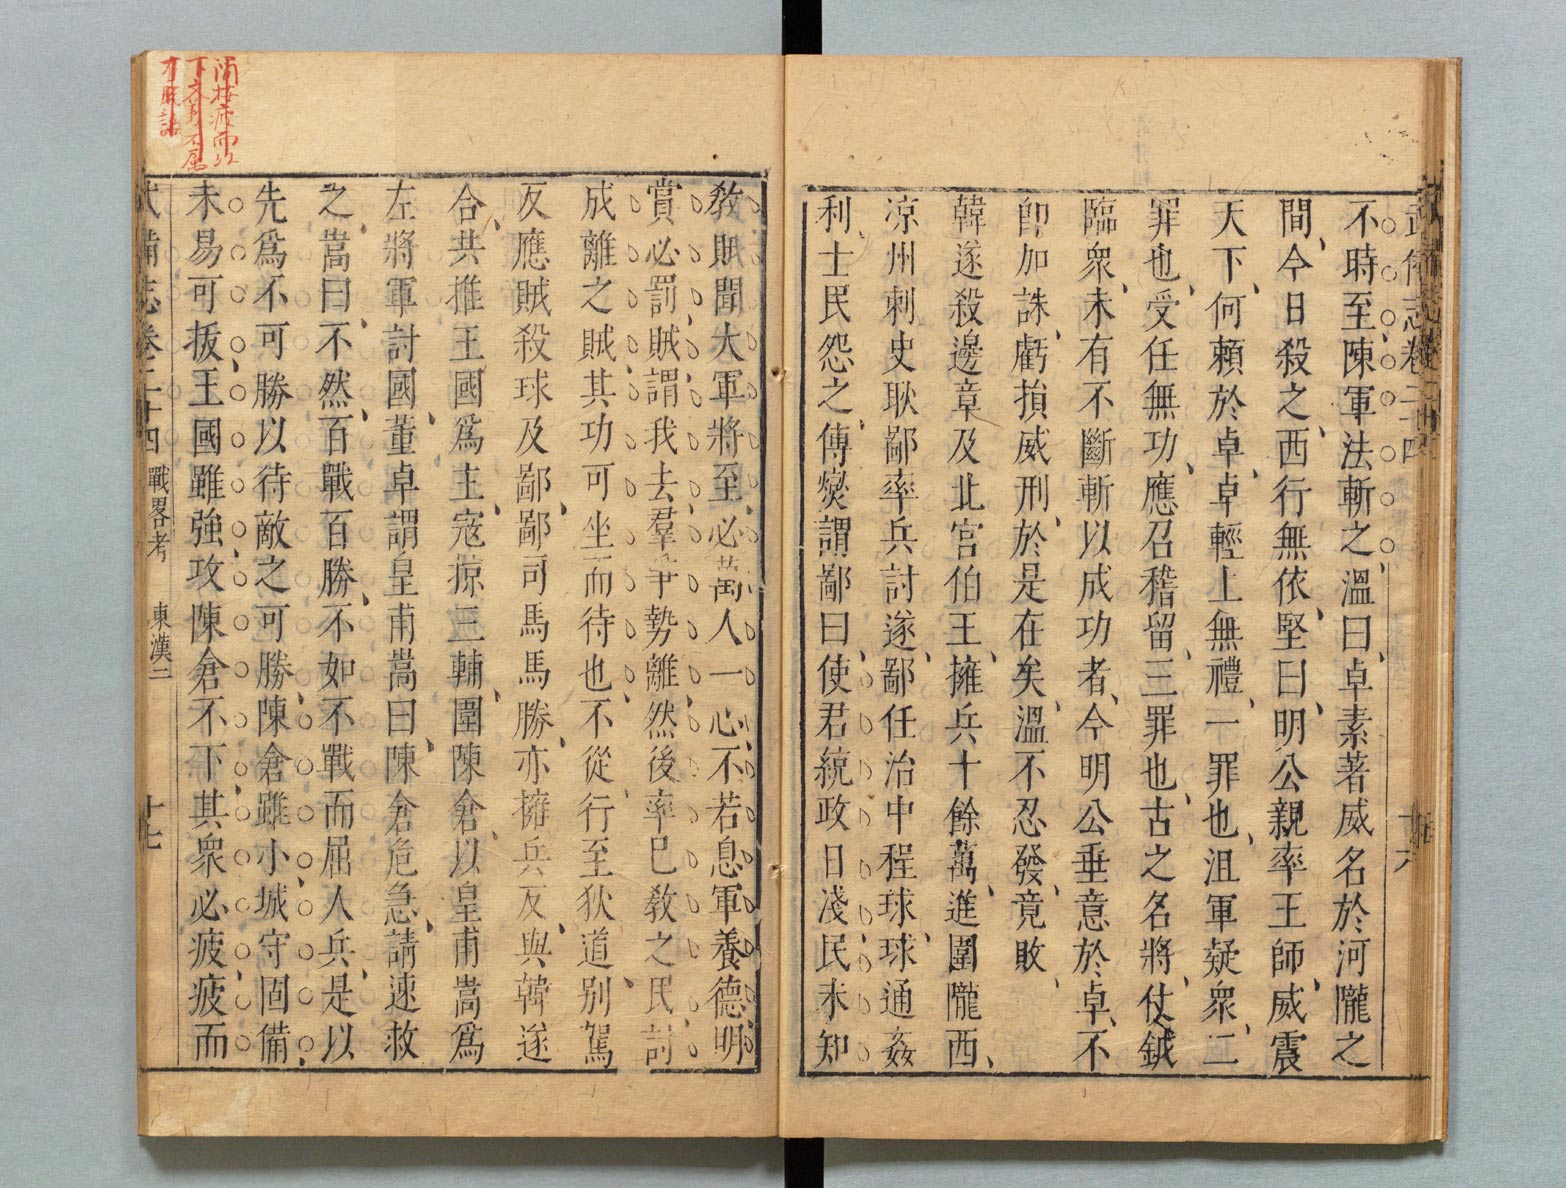 武備志卷二十四
十六
不時至陳軍法斬之溫曰卓素著威名於河隴之
間今日殺之西行無依堅曰明公親率王師威震
天下何賴於卓卓輕上無禮一罪也沮軍疑衆二
罪也受任無功應召稽留三罪也古之名將仗鉞
臨衆未有不斷斬以成功者今明公垂意於卓不
卽加誅虧損威刑於是在矣溫不忍發竟敗
韓遂殺邊章及北宮伯王擁兵十餘萬進圍隴西
凉州刺史耿鄙率兵討遂鄙任治中程球球通姦
利士民怨之傅燮謂鄙曰使君統政日淺民未知
敎賊聞大軍將至必萬人一心不若息軍養德明
賞必罰賊謂我去羣爭勢離然後率已敎之民討
成離之賊其功可坐而待也不從行至狄道別駕
反應賊殺球及鄙鄙司馬馬勝亦擁兵反與韓遂
合共推王國爲主寇掠三輔圍陳倉以皇甫嵩爲
左將軍討國董卓謂皇甫嵩曰陳倉危急請速救
之嵩曰不然百戰百勝不如不戰而屈人兵是以
先爲不可勝以待敵之可勝陳倉雖小城守固備
未易可拔王國雖強攻陳倉不下其衆必疲疲而
武備志卷二十四 戰畧考 東漢二 十七